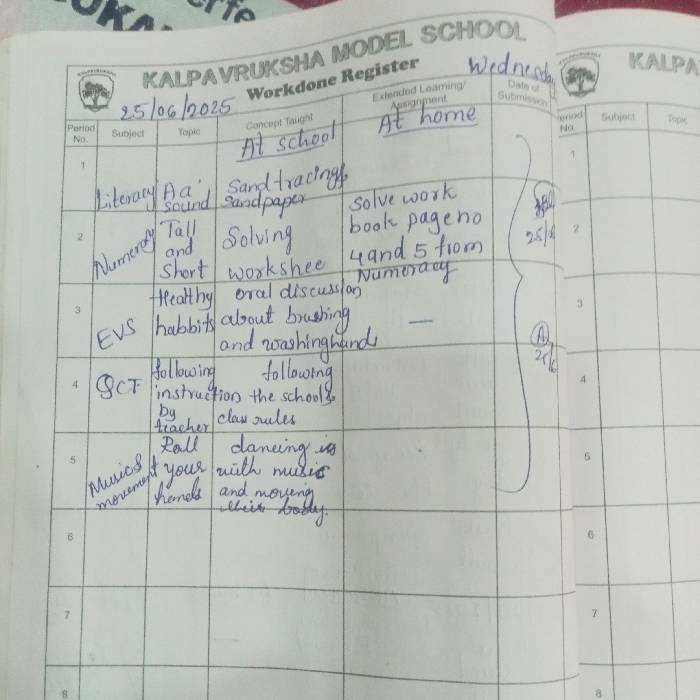 KALPAVRUKSHA MODEL SCHOOL
Workdone Register
Wednesday
25/06/2025
Period No. Subject Topic Concept Taught Extended Learning/ Assignment Date of Submission
At school At home
1 Literacy Aa sound Sand tracing Sandpaper
2 Numeracy Tall and Short Solving workshee solve work book page no 4 and 5 from Numeracy
25/6
3 EVS Healthy habbits oral discussion about brushing and washing hands —
25/6
4 following instruction by teacher following the school & class rules
5 Music & movement Roll your hands dancing with music and moving their body.
6
7
8
KALPA
Period No. Subject Topic
1
2
3
4
5
6
7
8